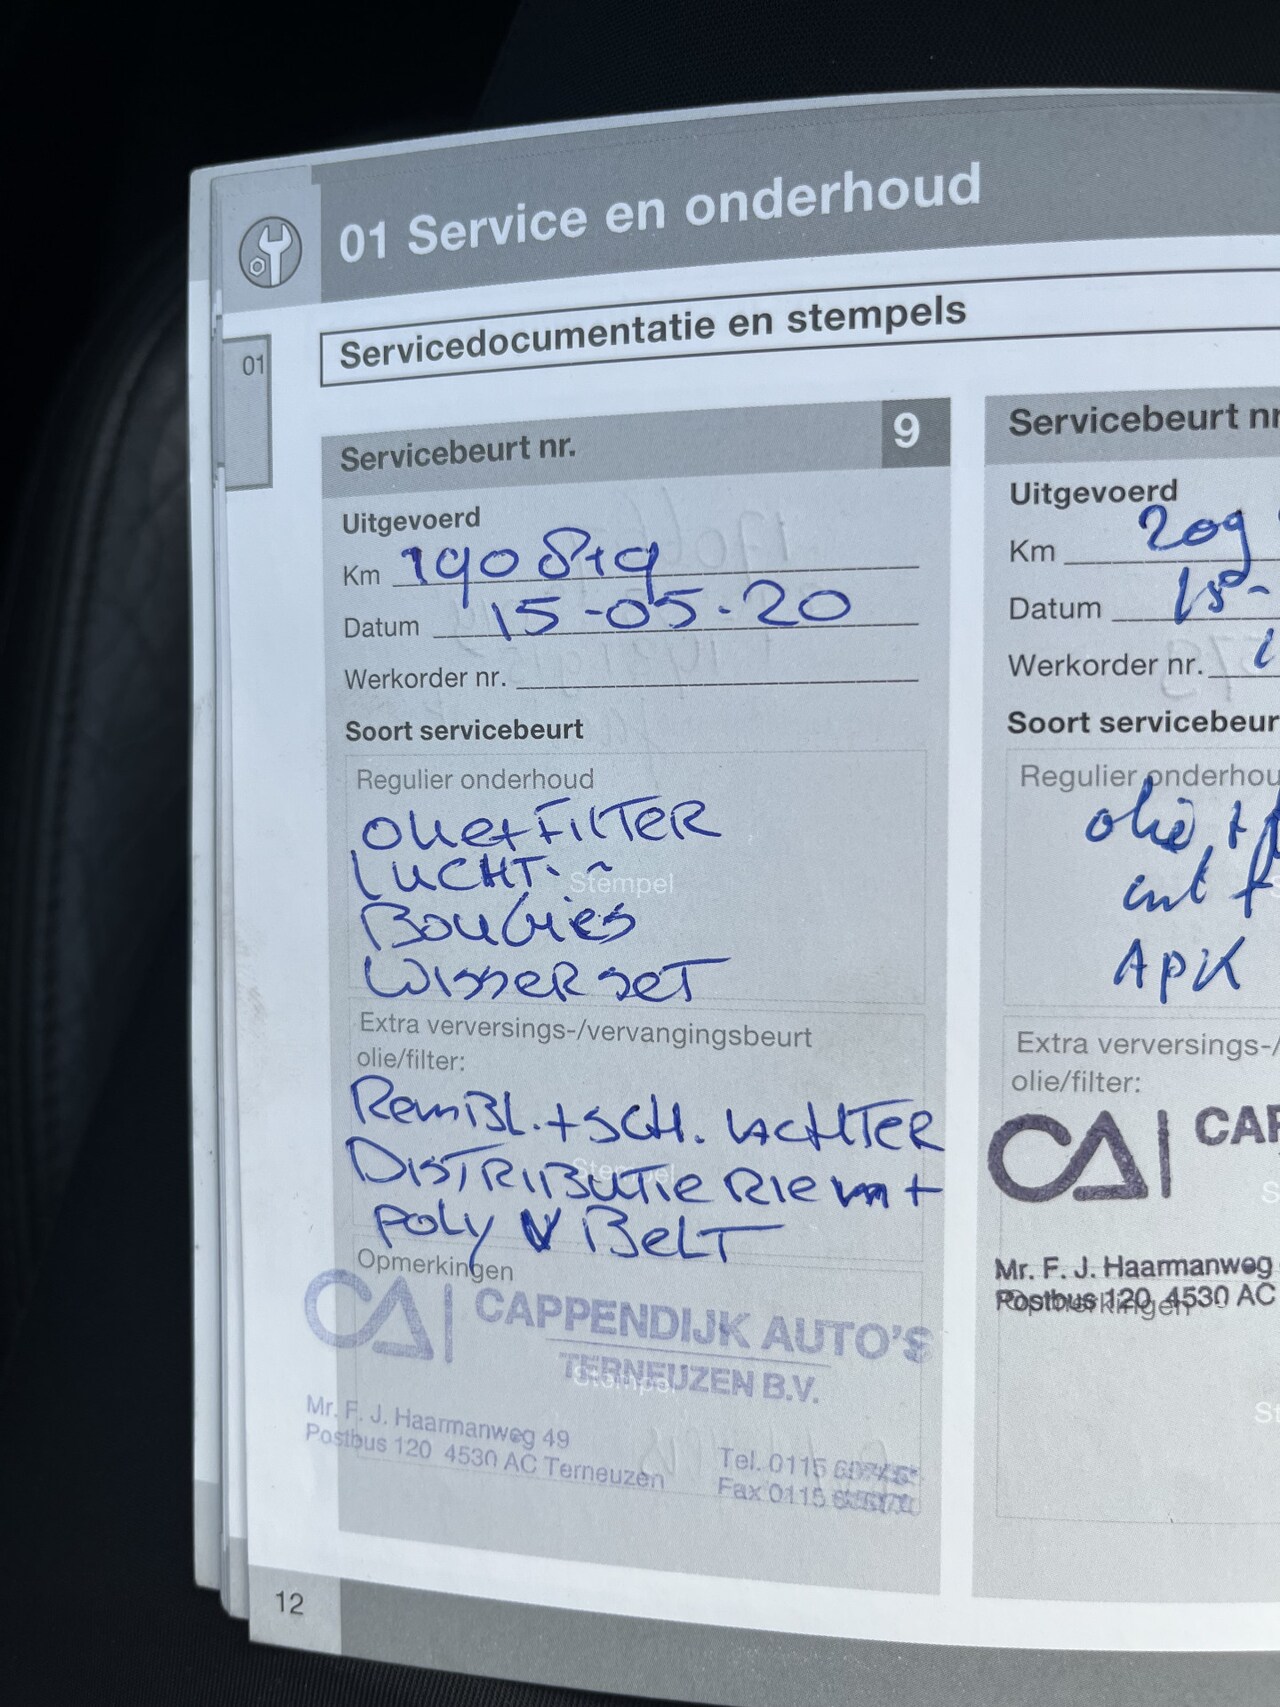 01 Service en onderhoud
01
Servicedocumentatie en stempels
Servicebeurt nr. 9
Uitgevoerd
Km 190819
Datum 15-05-20
Werkorder nr.
Soort servicebeurt
Regulier onderhoud
Olie+FILTER
LUCHT. ~
Stempel
Bougies
WisserseT
Extra verversings-/vervangingsbeurt
olie/filter:
RemBL.+SCH. ACHTER
DISTRIBUTIE RIEM +
Stempel
Poly V BELT
Opmerkingen
CA CAPPENDIJK AUTO'S
TERNEUZEN B.V.
Stempel
Mr. F. J. Haarmanweg 49
Postbus 120 4530 AC Terneuzen
Tel. 0115
Fax 0115
12
Servicebeurt nr
Uitgevoerd
Km 209
Datum 15-
Werkorder nr.
Soort servicebeur
Regulier onderhou
olie +
int f
APK
Extra verversings-/
olie/filter:
CA CAP
Mr. F. J. Haarmanweg
Postbus 120 4530 AC
Opmerkingen